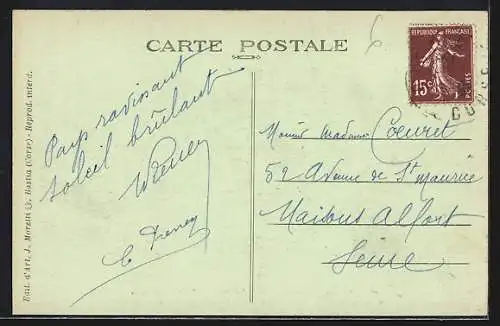 CARTE POSTALE
REPUBLIQUE FRANÇAISE
15c
POSTES
CORSE
Pays ravissant
soleil brûlant
Edit. d'Art, J. Moretti, Bastia (Corse) - Reprod. interd.
Monsieur Madame Coeuret
52 Avenue de St Maurice
Maisons Alfort
Seine